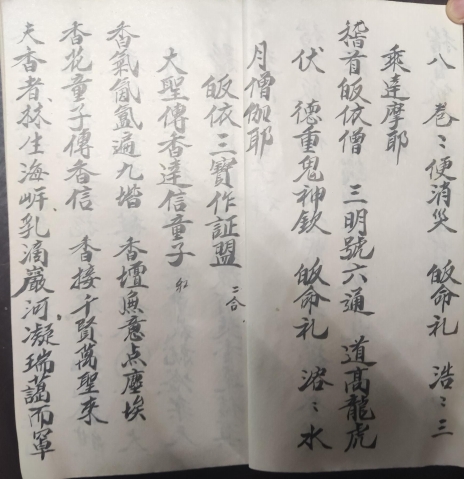 八　卷：便消災　皈命礼　浩：三
乘達摩耶
稽首皈依僧　三明號六通　道高龍虎
伏　德重鬼神欽　皈命礼　溶：水
月僧伽耶
皈依三寶作証盟　二合
大聖傳香達信童子
香氣氤氳遍九堦　香壇無意点塵埃
香花童子傳香信　香接千賢萬聖來
夫香者、林生海岍、乳滴巖河、凝瑞藹而罩